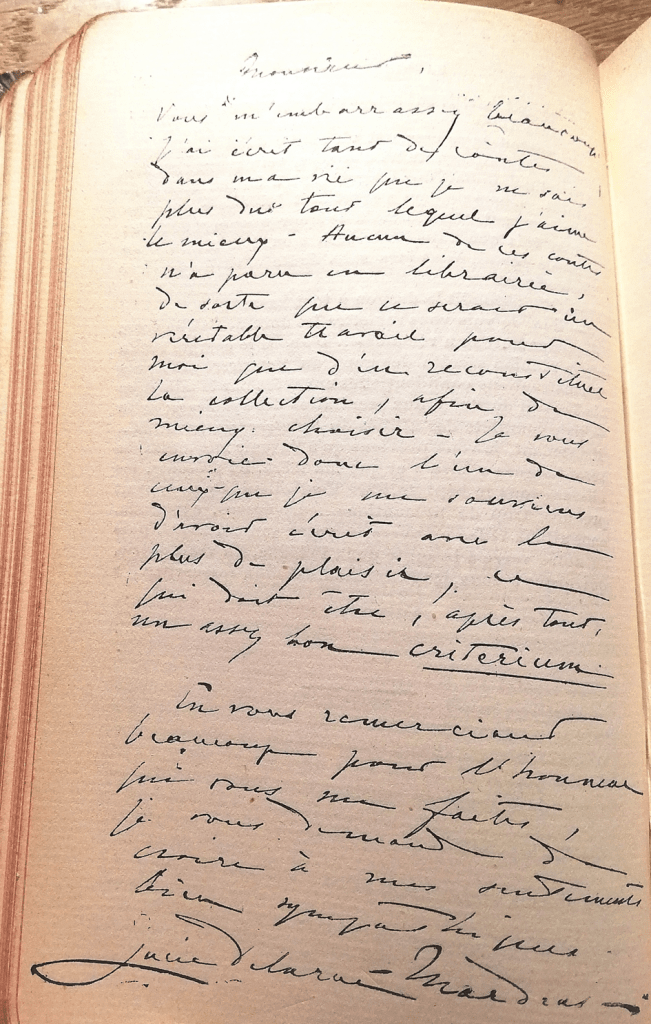 Monsieur,
Vous m'embarrassez beaucoup
J'ai écrit tant de contes
dans ma vie que je ne sais
plus du tout lequel j'aime
le mieux – Aucun de ces contes
n'a paru en librairie,
de sorte que ce serait un
véritable travail pour
moi que d'en reconstituer
la collection, afin de
mieux choisir – Je vous
envoie donc l'un de
ceux que je me souviens
d'avoir écrit avec le
plus de plaisir, ce
qui doit être, après tout,
un assez bon criterium.
En vous remerciant
beaucoup pour l'honneur
que vous me faites,
je vous demande de
croire à mes sentiments
bien sympathiques.
Lucie Delarue-Mardrus –